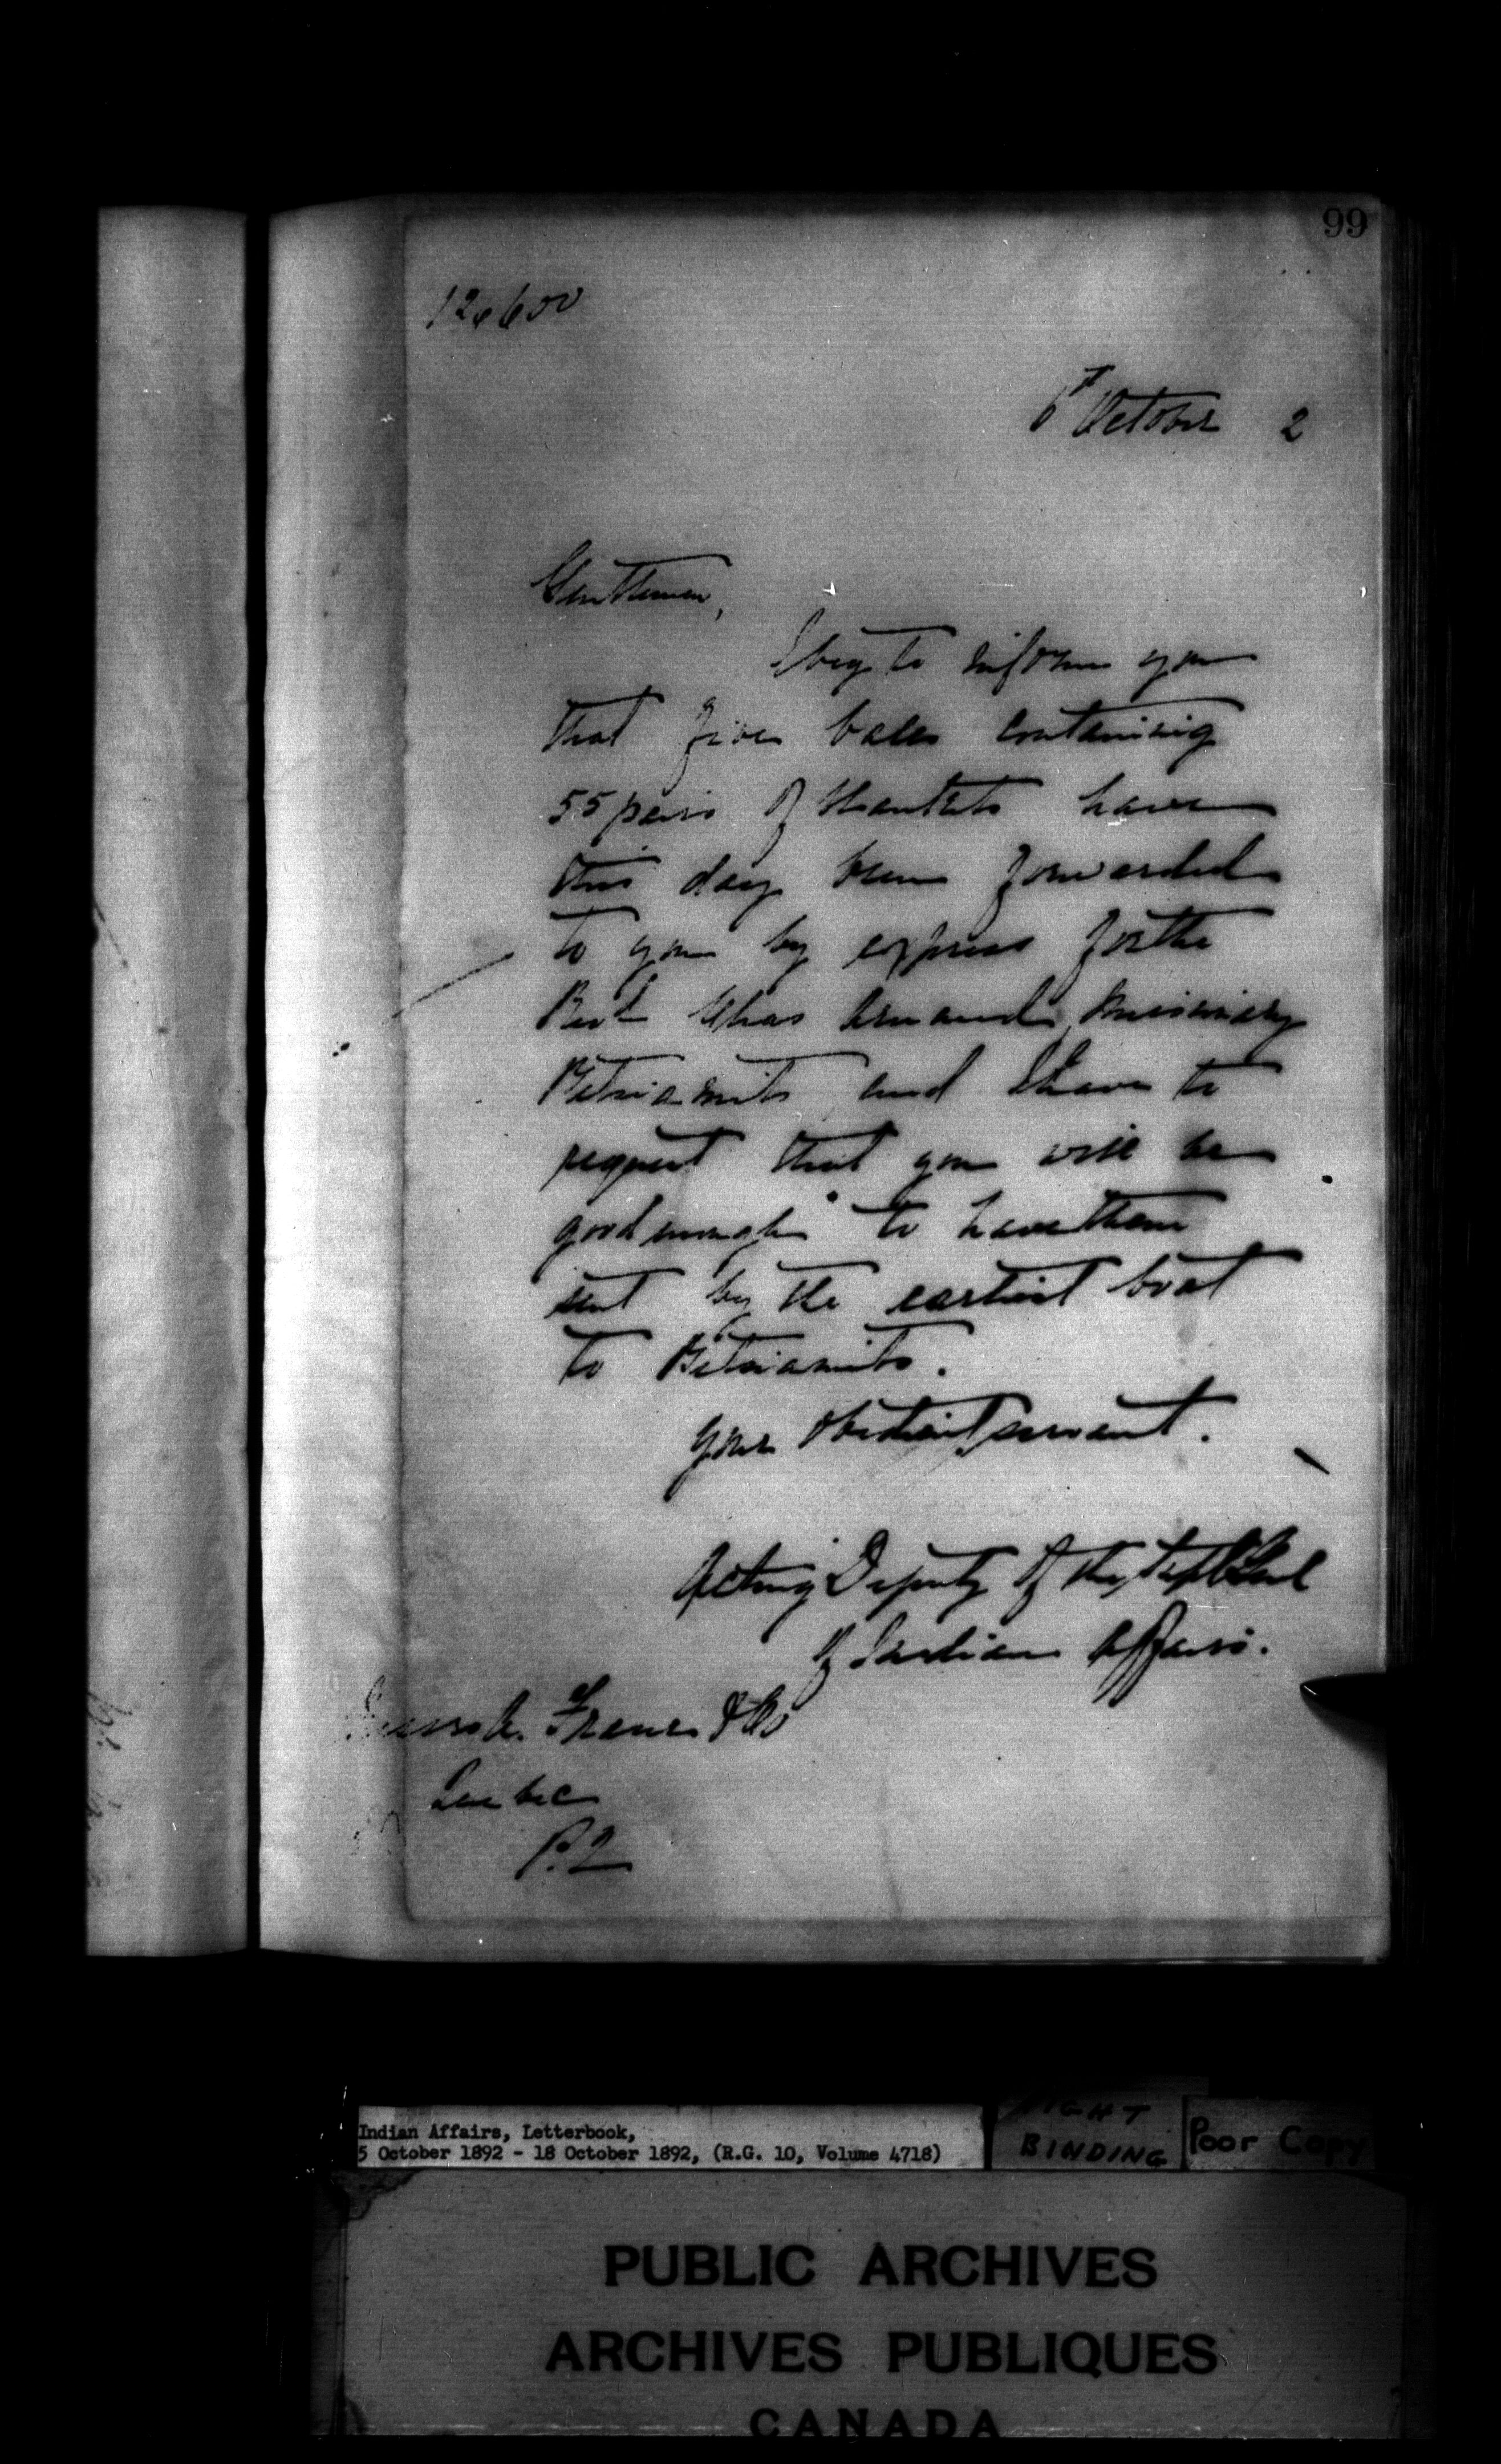 99
126600
6th October 2
Gentlemen,
I beg to inform you
that five bales containing
55 pairs of blankets have
this day been forwarded
to you by express for the
Revd Chas Arnaud, Missionary
Betsiamits and I have to
request that you will be
good enough to have them
sent by the earliest boat
to Betsiamits.
Your obedient servant.
Acting Deputy of the Supt Genl
of Indian Affairs.
Messrs A. Fraser & Co
Quebec
P.Q
Indian Affairs, Letterbook,
5 October 1892 - 18 October 1892, (R.G. 10, Volume 4718)
BINDING
Poor Copy
PUBLIC ARCHIVES
ARCHIVES PUBLIQUES
CANADA